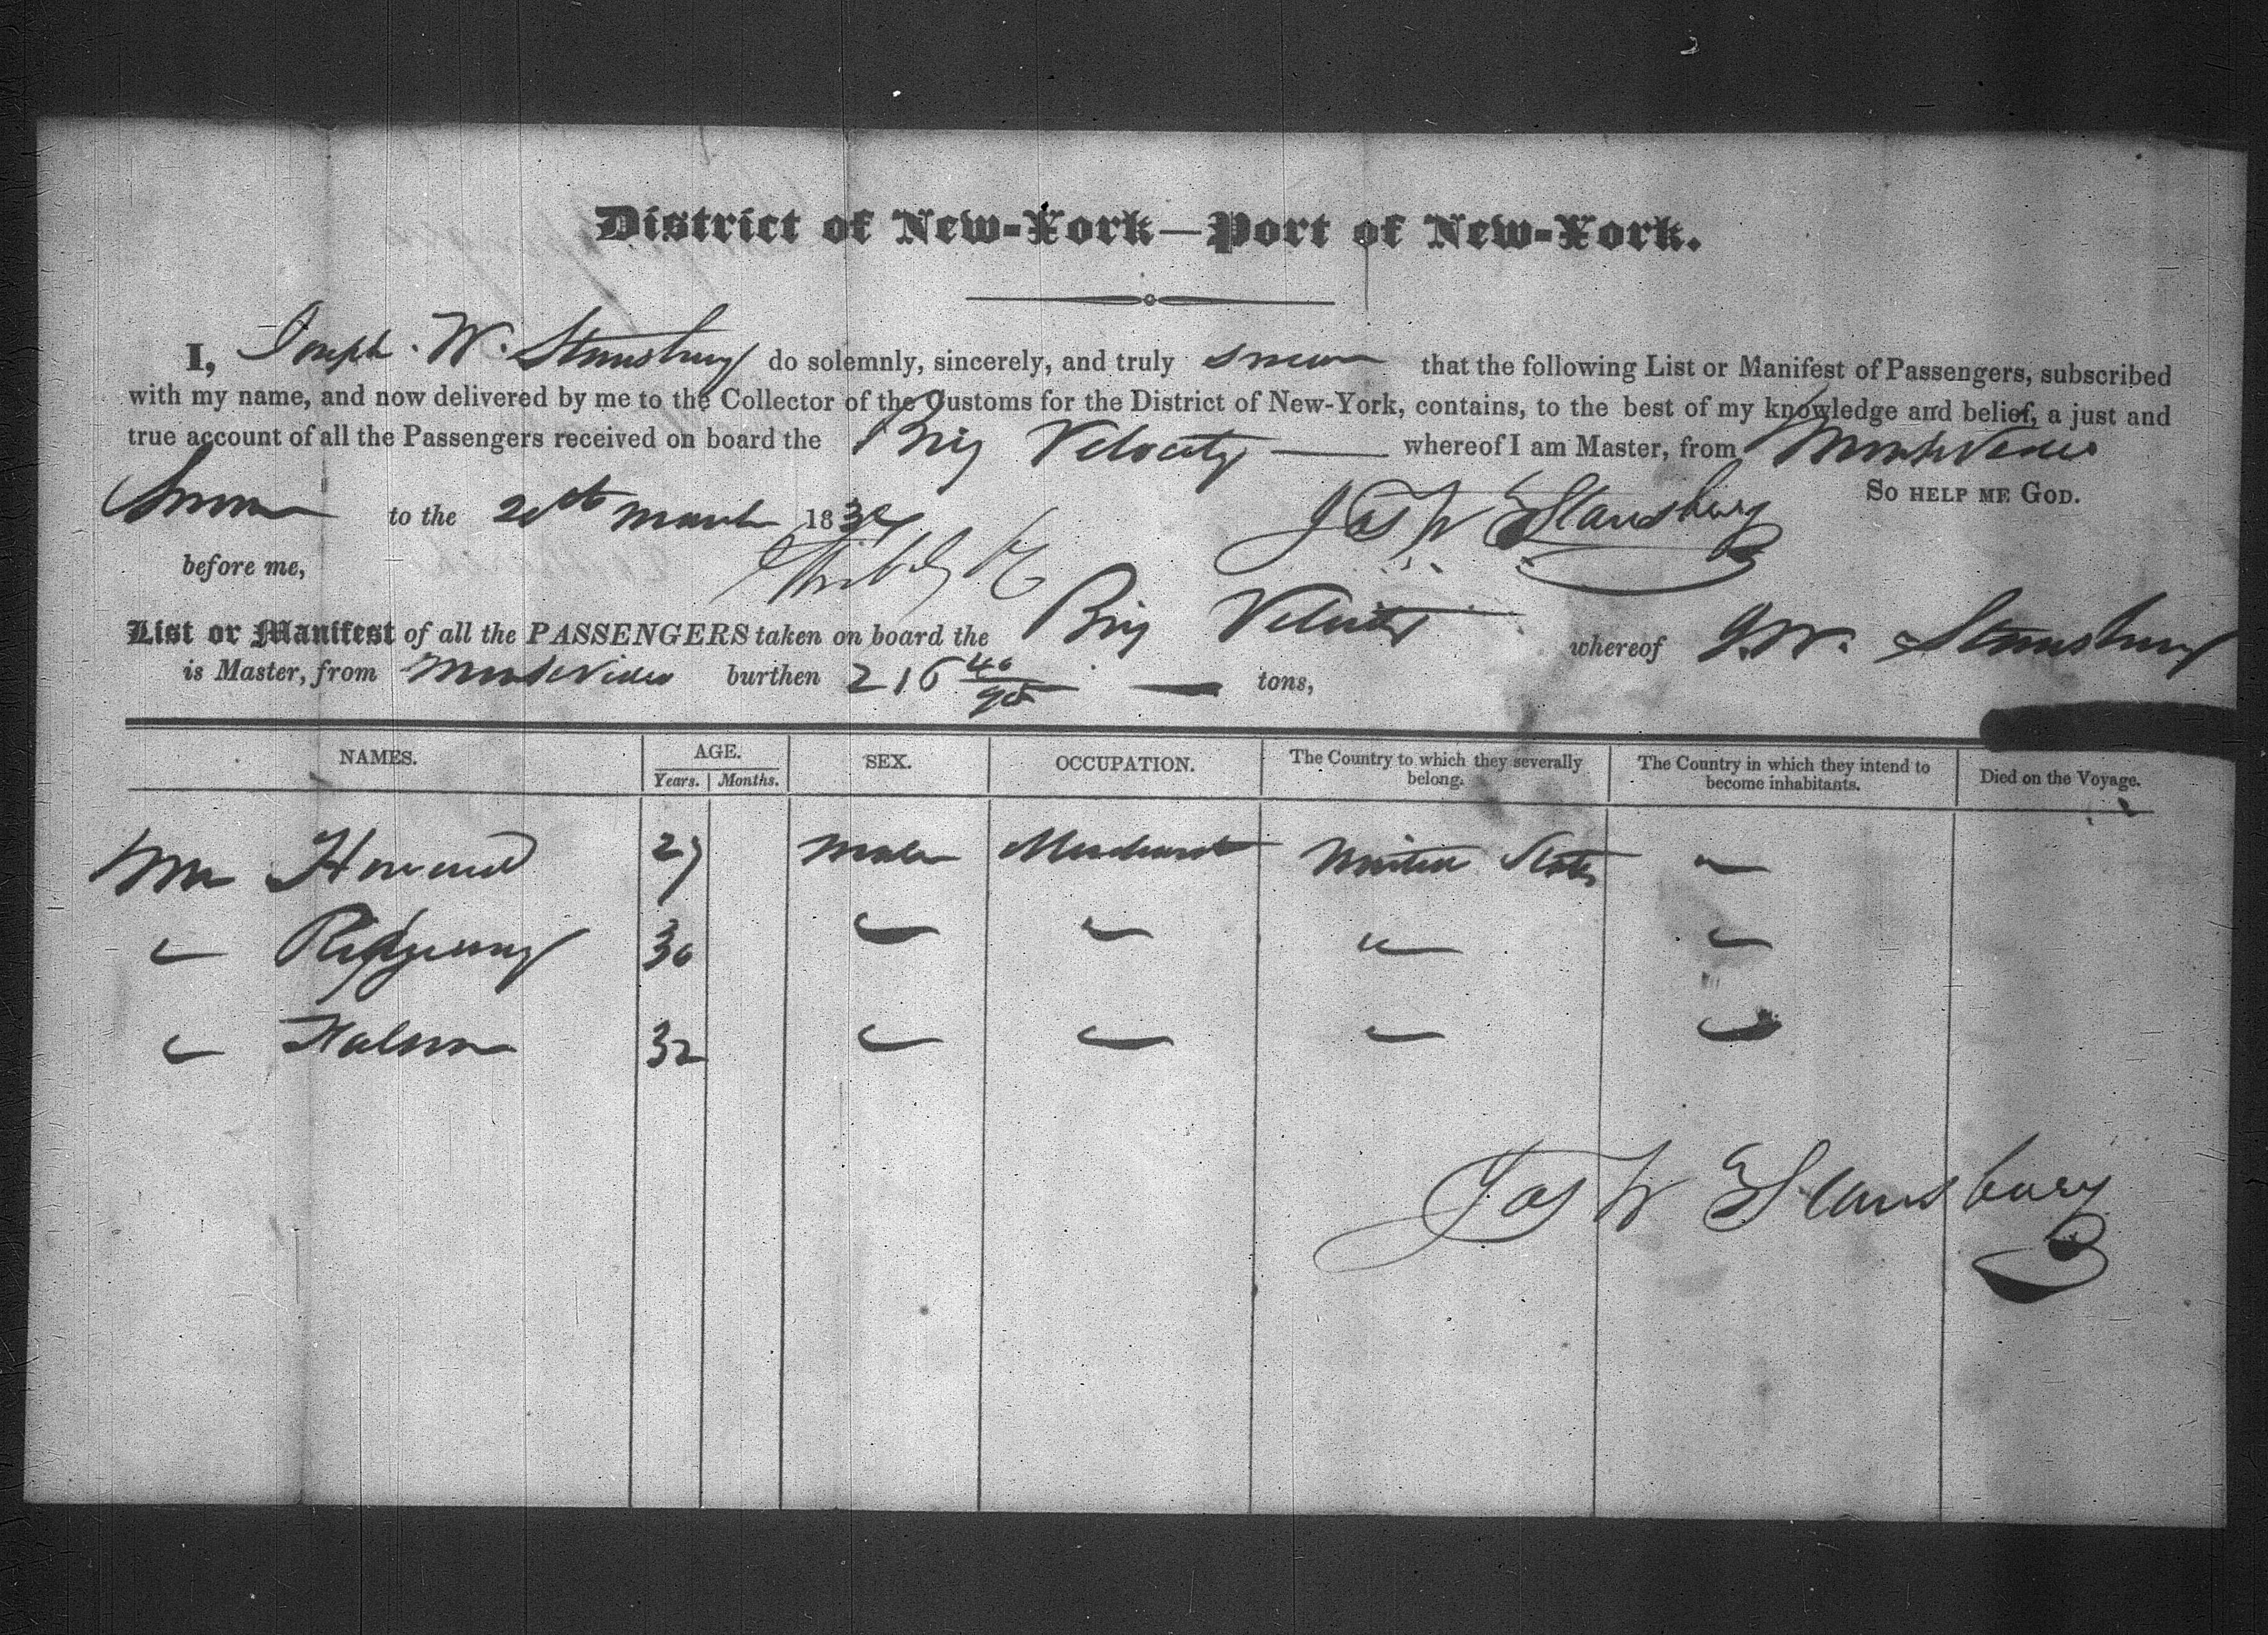 District of New-York—Port of New-York.
I, Joseph. W. Stansbury do solemnly, sincerely, and truly swear that the following List or Manifest of Passengers, subscribed
with my name, and now delivered by me to the Collector of the Customs for the District of New-York, contains, to the best of my knowledge and belief, a just and
true account of all the Passengers received on board the Brig Velocity — whereof I am Master, from Montevideo
So help me God.
Sworn to the march 183 Jos W Stansbury
before me,
List or Manifest of all the PASSENGERS taken on board the Brig Velocity whereof J. W. Stansbury
is Master, from Montevideo burthen 216 40/95 — tons,
NAMES. AGE. SEX. OCCUPATION. The Country to which they severally belong. The Country in which they intend to become inhabitants. Died on the Voyage.
Years. Months.
Mr Howard 27 Male Merchant United States "
" Ridgeway 30 " " " "
" 32 " " " "
Jos W Stansbury